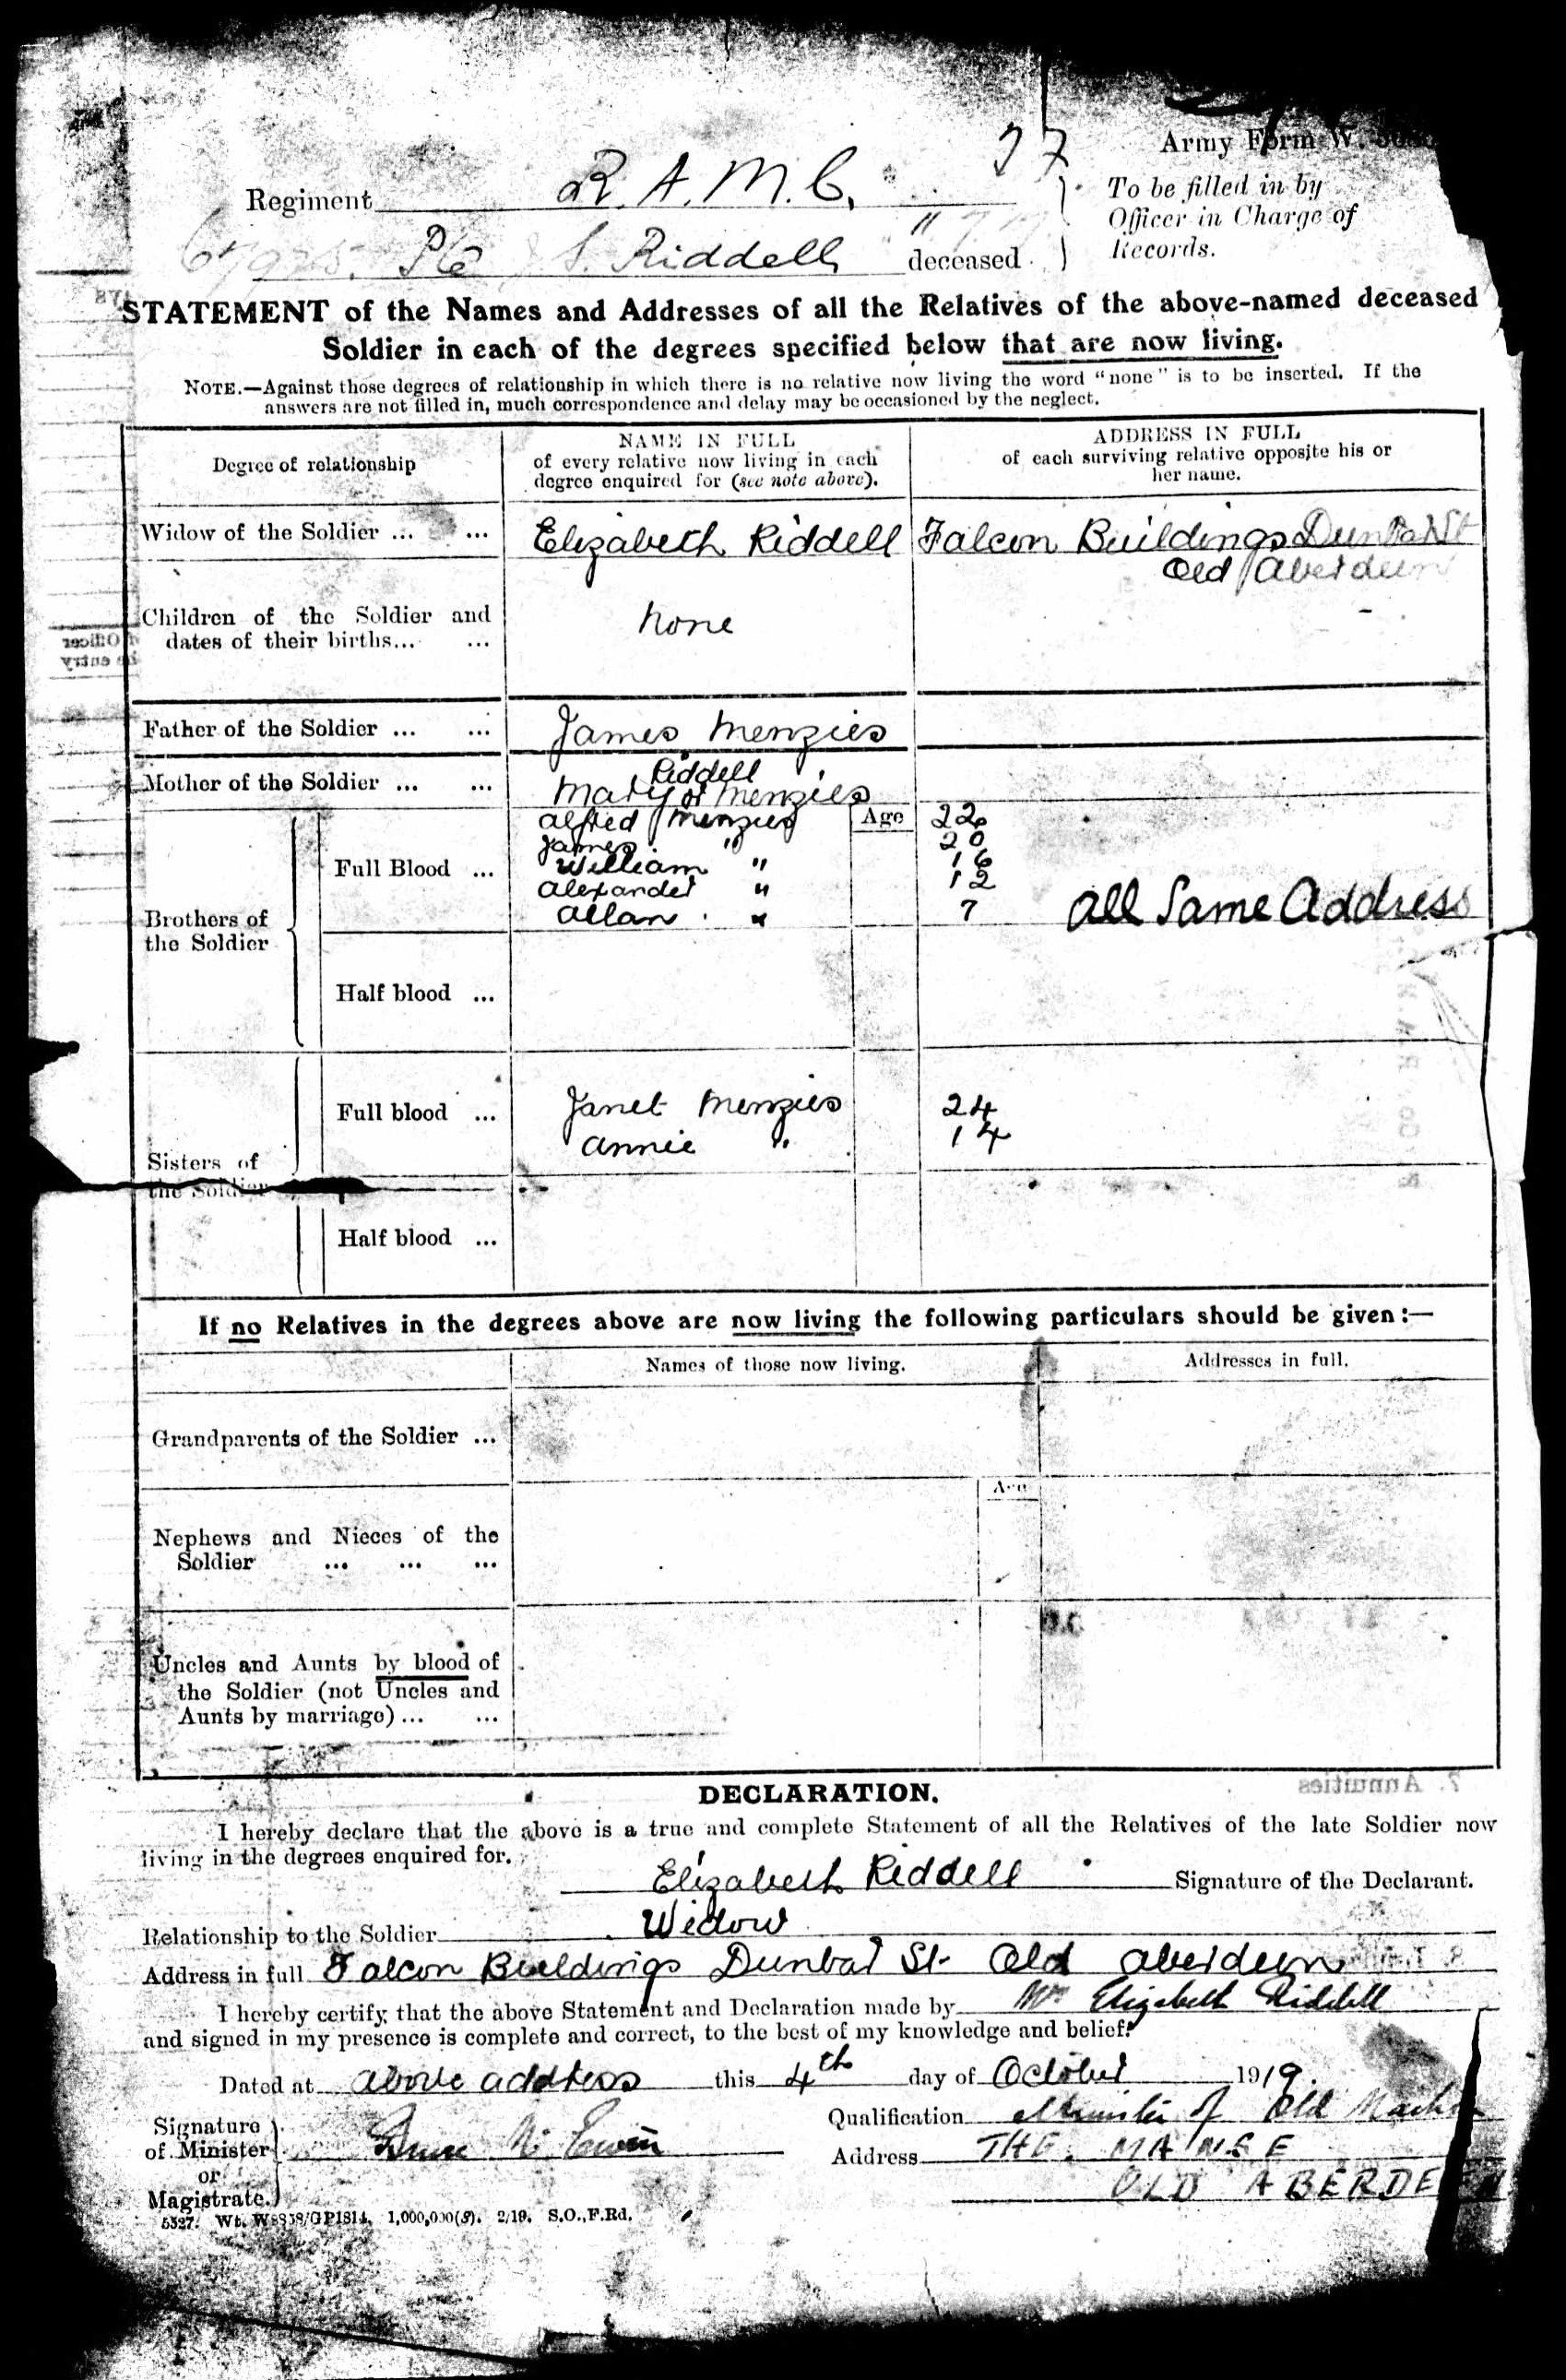 Army Form W.
Regiment R. A. M. C. 27
To be filled in by
Officer in Charge of
Records.
Pte S. Riddell deceased
STATEMENT of the Names and Addresses of all the Relatives of the above-named deceased
Soldier in each of the degrees specified below that are now living.
NOTE.—Against those degrees of relationship in which there is no relative now living the word "none" is to be inserted. If the
answers are not filled in, much correspondence and delay may be occasioned by the neglect.
Degree of relationship
NAME IN FULL
of every relative now living in each
degree enquired for (see note above).
ADDRESS IN FULL
of each surviving relative opposite his or
her name.
Widow of the Soldier ... ... Elizabeth Riddell Falcon Buildings Dunbar St
Old Aberdeen
Children of the Soldier and
dates of their births... ...
None
Father of the Soldier ... ... James Menzies
Riddell
Mother of the Soldier ... ... Mary or Menzies
Brothers of
the Soldier
Full Blood ...
Age
Alfred Menzies 22
James " 20
William " 16
Alexander " 12
Allan " 7
All Same Address
Half blood ...
Sisters of
the Soldier
Full blood ...
Janet Menzies 24
Annie " 14
Half blood ...
If no Relatives in the degrees above are now living the following particulars should be given:—
Names of those now living. Addresses in full.
Grandparents of the Soldier ...
Age
Nephews and Nieces of the
Soldier ... ... ...
Uncles and Aunts by blood of
the Soldier (not Uncles and
Aunts by marriage) ... ...
7. Annuities
DECLARATION.
I hereby declare that the above is a true and complete Statement of all the Relatives of the late Soldier now
living in the degrees enquired for.
Elizabeth Riddell Signature of the Declarant.
Relationship to the Soldier Widow
Address in full Falcon Buildings Dunbar St Old Aberdeen
I hereby certify that the above Statement and Declaration made by Mrs Elizabeth Riddell
and signed in my presence is complete and correct, to the best of my knowledge and belief.
Dated at above address this 4th day of October 1919.
Signature
of Minister
or
Magistrate.
Qualification Minister of Old
Address THE MANSE
OLD ABERDEEN
5327. Wt. W8838/GP1814. 1,000,000(9). 2/19. S.O.,F.Rd.